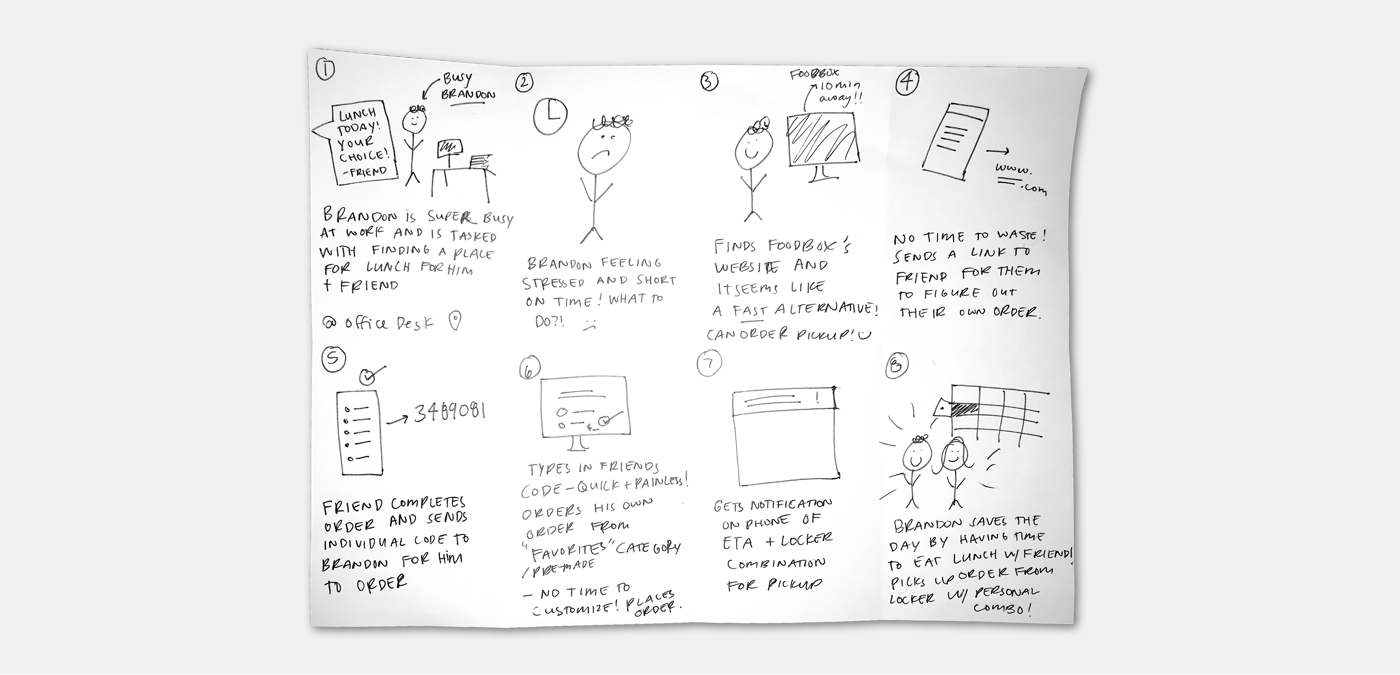 1
BUSY
BRANDON
LUNCH
TODAY!
YOUR
CHOICE!
-FRIEND
BRANDON IS SUPER BUSY
AT WORK AND IS TASKED
WITH FINDING A PLACE
FOR LUNCH FOR HIM
+ FRIEND
@ OFFICE DESK
2
BRANDON FEELING
STRESSED AND SHORT
ON TIME! WHAT TO
DO?! :(
3
FOODBOX
10 min
away!!
FINDS FOODBOX'S
WEBSITE AND
IT SEEMS LIKE
A FAST ALTERNATIVE!
CAN ORDER PICKUP! :)
4
www.
.com
NO TIME TO WASTE!
SENDS A LINK TO
FRIEND FOR THEM
TO FIGURE OUT
THEIR OWN ORDER.
5
3489081
FRIEND COMPLETES
ORDER AND SENDS
INDIVIDUAL CODE TO
BRANDON FOR HIM
TO ORDER
6
TYPES IN FRIENDS
CODE - QUICK + PAINLESS!
ORDERS HIS OWN
ORDER FROM
"FAVORITES" CATEGORY
/PRE-MADE
- NO TIME TO
CUSTOMIZE! PLACES
ORDER.
7
!
GETS NOTIFICATION
ON PHONE OF
ETA + LOCKER
COMBINATION
FOR PICKUP
8
BRANDON SAVES THE
DAY BY HAVING TIME
TO EAT LUNCH W/ FRIEND!
PICKS UP ORDER FROM
LOCKER W/ PERSONAL
COMBO!